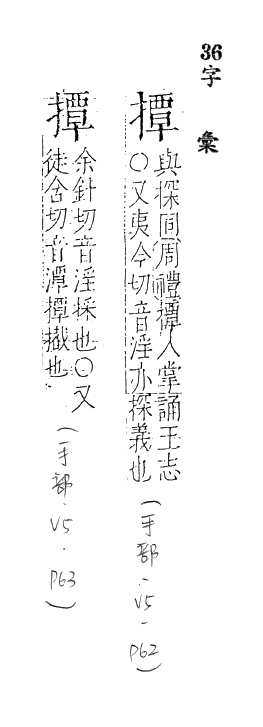 36字彙
撢
與探同周禮撢人掌誦王志
〇又夷今切音淫亦探義也
(手部-V5-P62)
撢
余針切音淫採也〇又
徒含切音潭撢撠也
(手部.V5.P63)